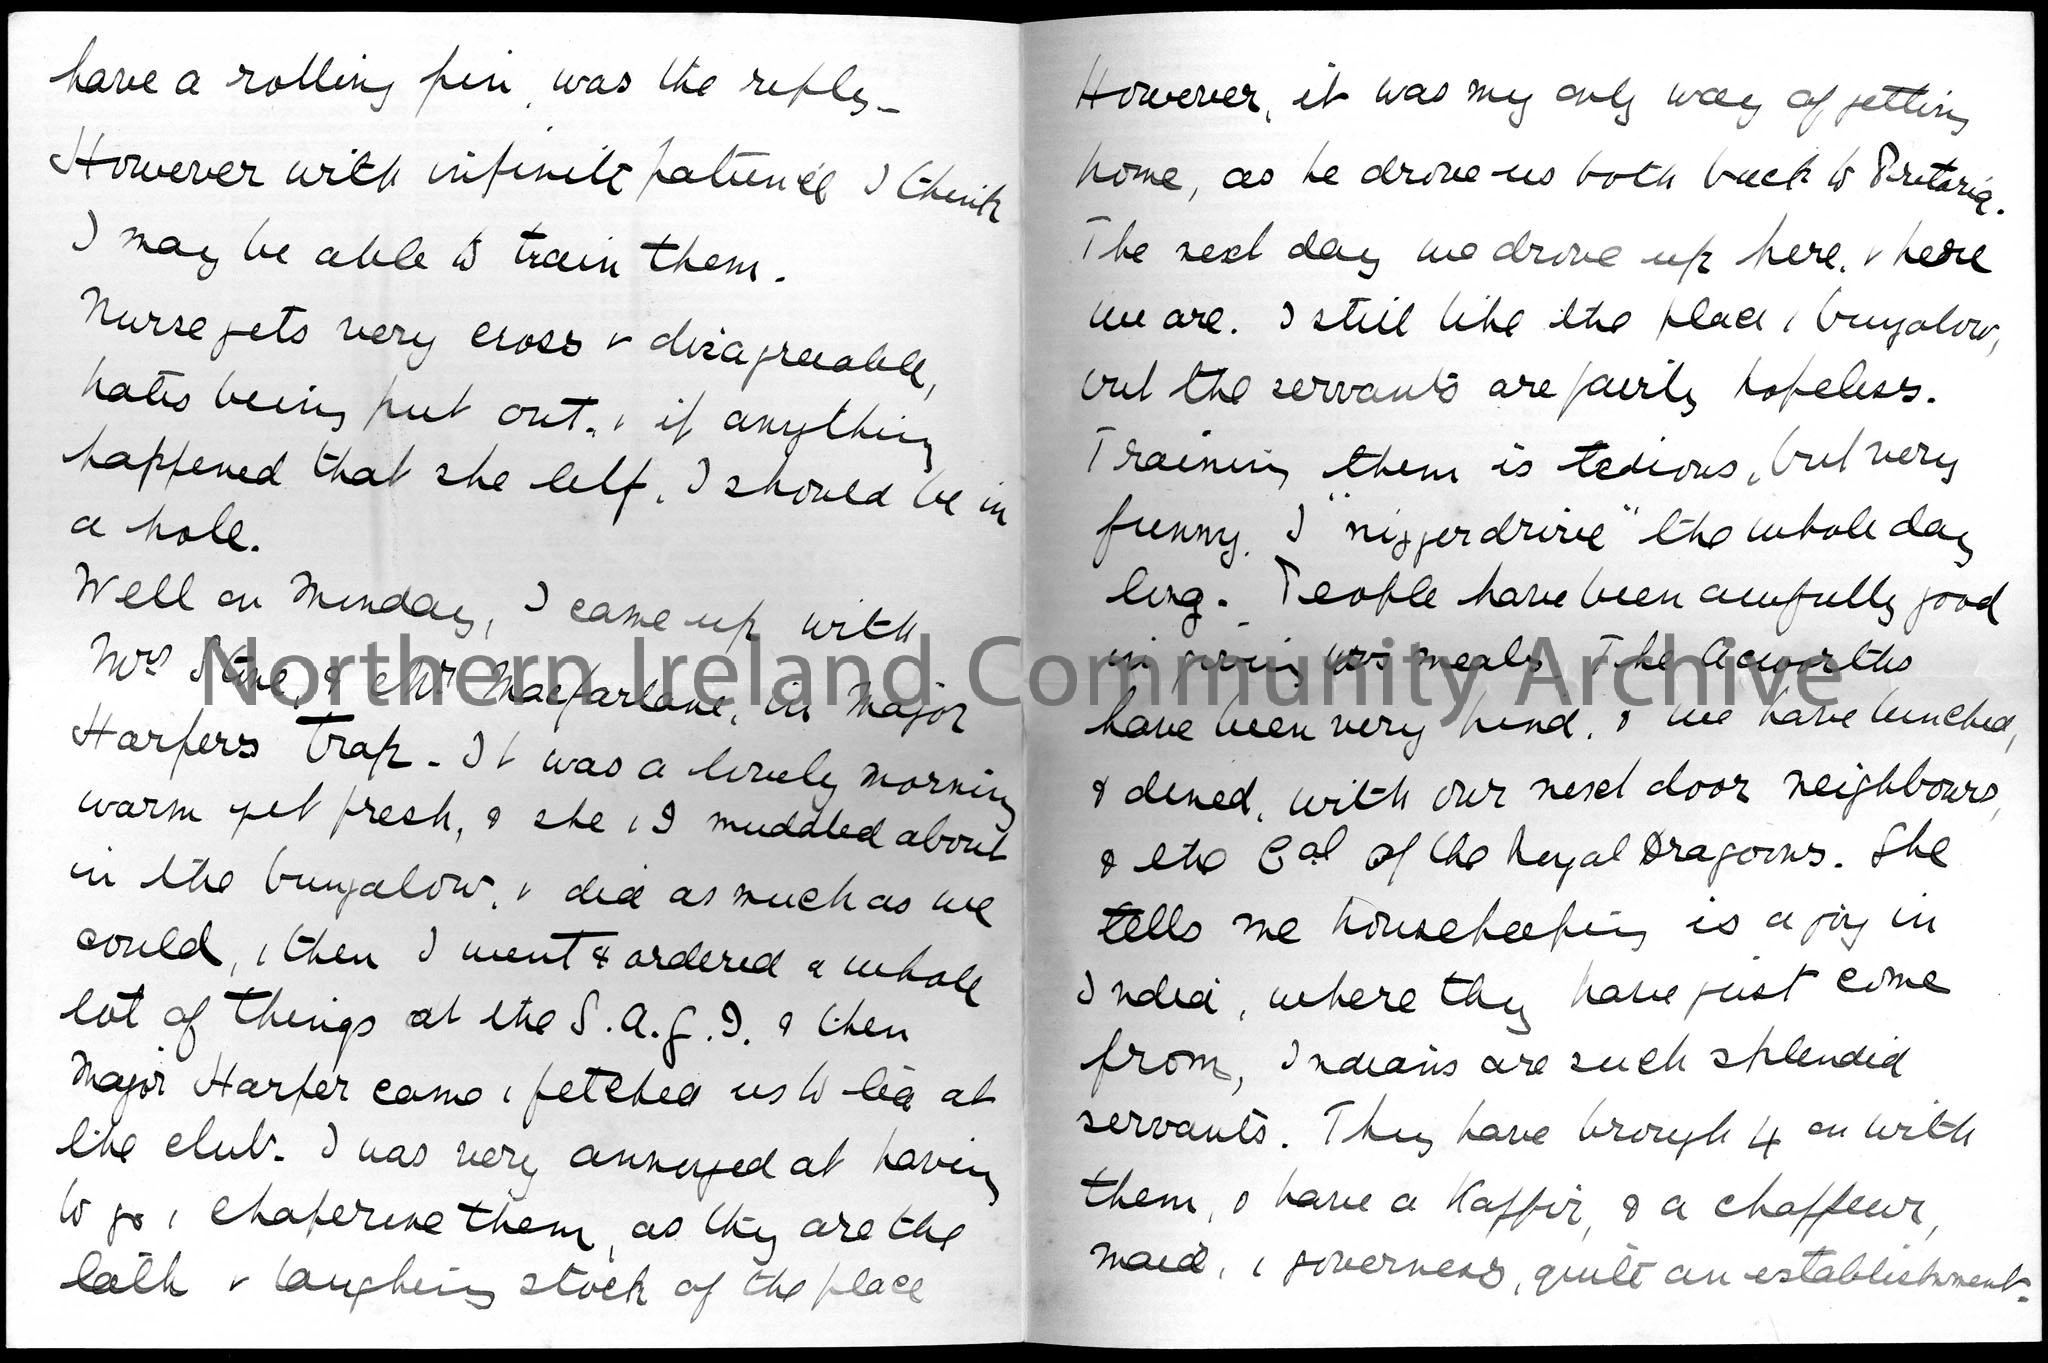 have a rolling pin, was the reply -
However with infinite patience I think
I may be able to train them.
Nurse gets very cross & disagreeable,
hates being put out, & if anything
happened that she left, I should be in
a hole.
Well on Monday, I came up with
Mrs Stone, & Mr Macfarlane, in Major
Harpers trap - It was a lovely morning
warm yet fresh, & she & I muddled about
in the bungalow, & did as much as we
could, & then I went & ordered a whole
lot of things at the S.A.G.I. & then
Major Harper came & fetched us to tea at
the club. I was very annoyed at having
to go & chaperone them, as they are the
talk & laughing stock of the place
However, it was my only way of getting
home, as he drove us both back to Pretoria.
The next day we drove up here, & here
we are. I still like the place & bungalow,
but the servants are fairly hopeless.
Training them is tedious, but very
funny. I "niggerdrive" the whole day
long. People have been awfully good
in giving us meals. The Acworths
have been very kind, & we have lunched,
& dined, with our next door neighbours,
& the Col of the Royal Dragoons. She
tells me housekeeping is a joy in
India, where they have just come
from, Indians are such splendid
servants. They have brough 4 on with
them, & have a Kaffir, & a chaffeur,
maid, & governess, quite an establishment.
Northern Ireland Community Archive